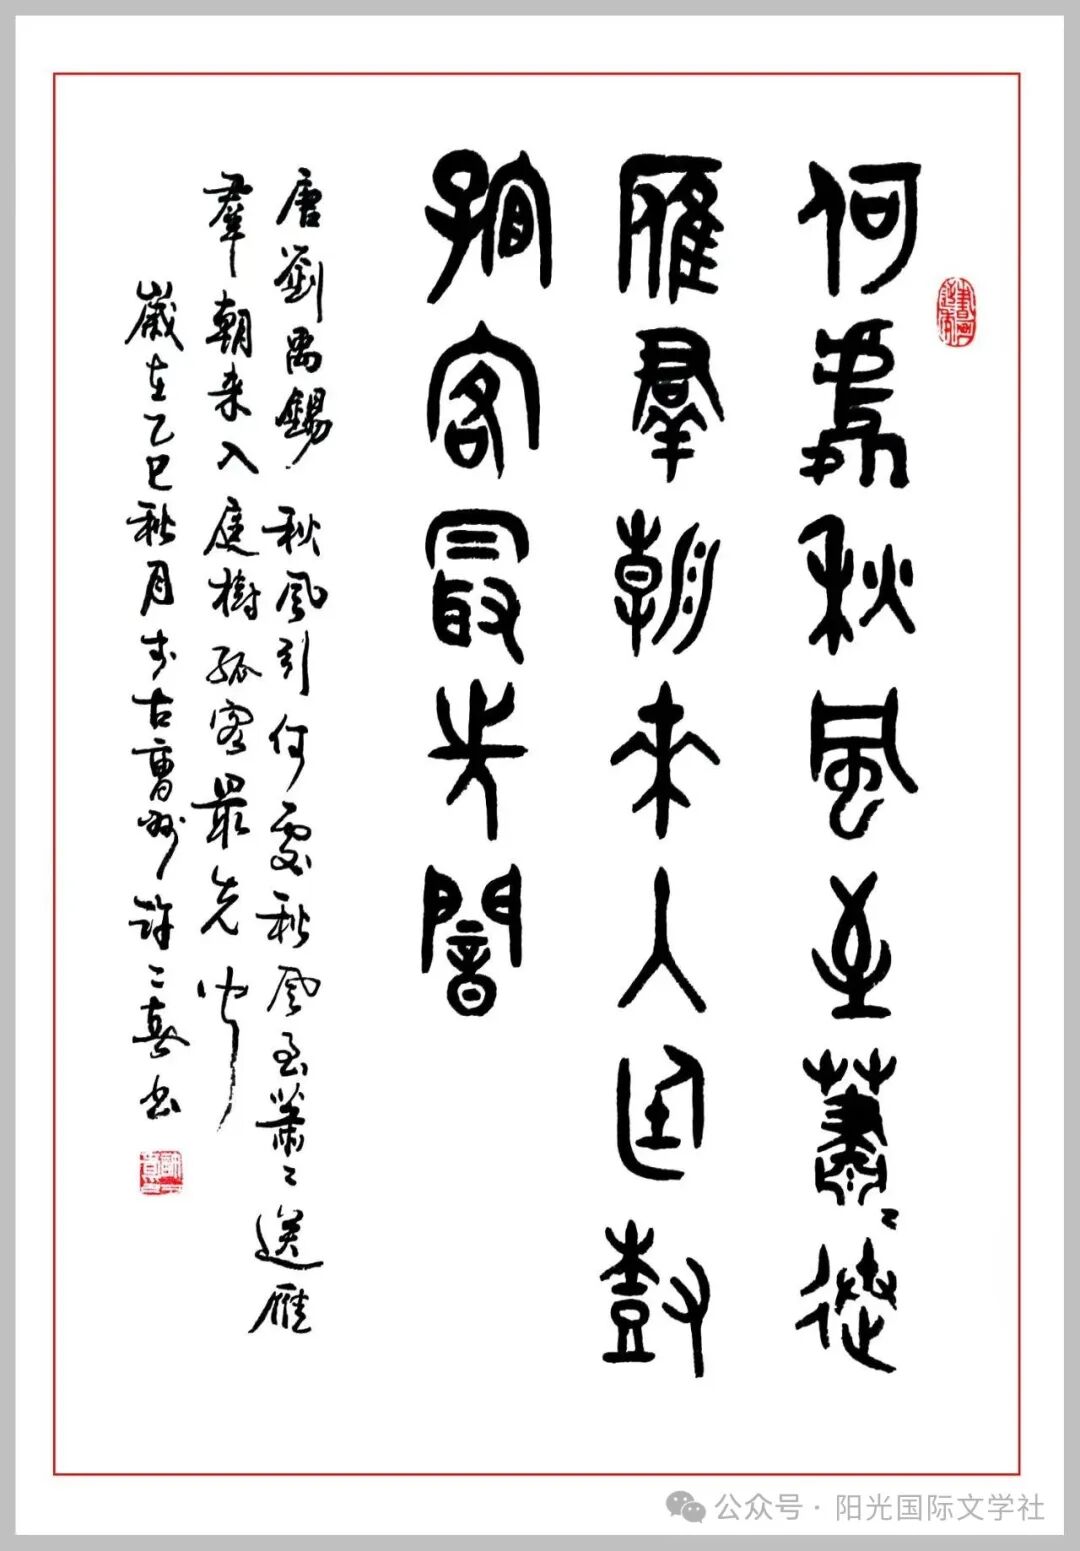 何處秋風至蕭〻送
雁羣朝來入庭樹
孤客最先聞
唐劉禹錫 秋風引 何處秋風至蕭〻送雁
羣朝来入庭樹孤客最先聞
歲在乙巳秋月於古曹州許喜書
公众号·阳光国际文学社